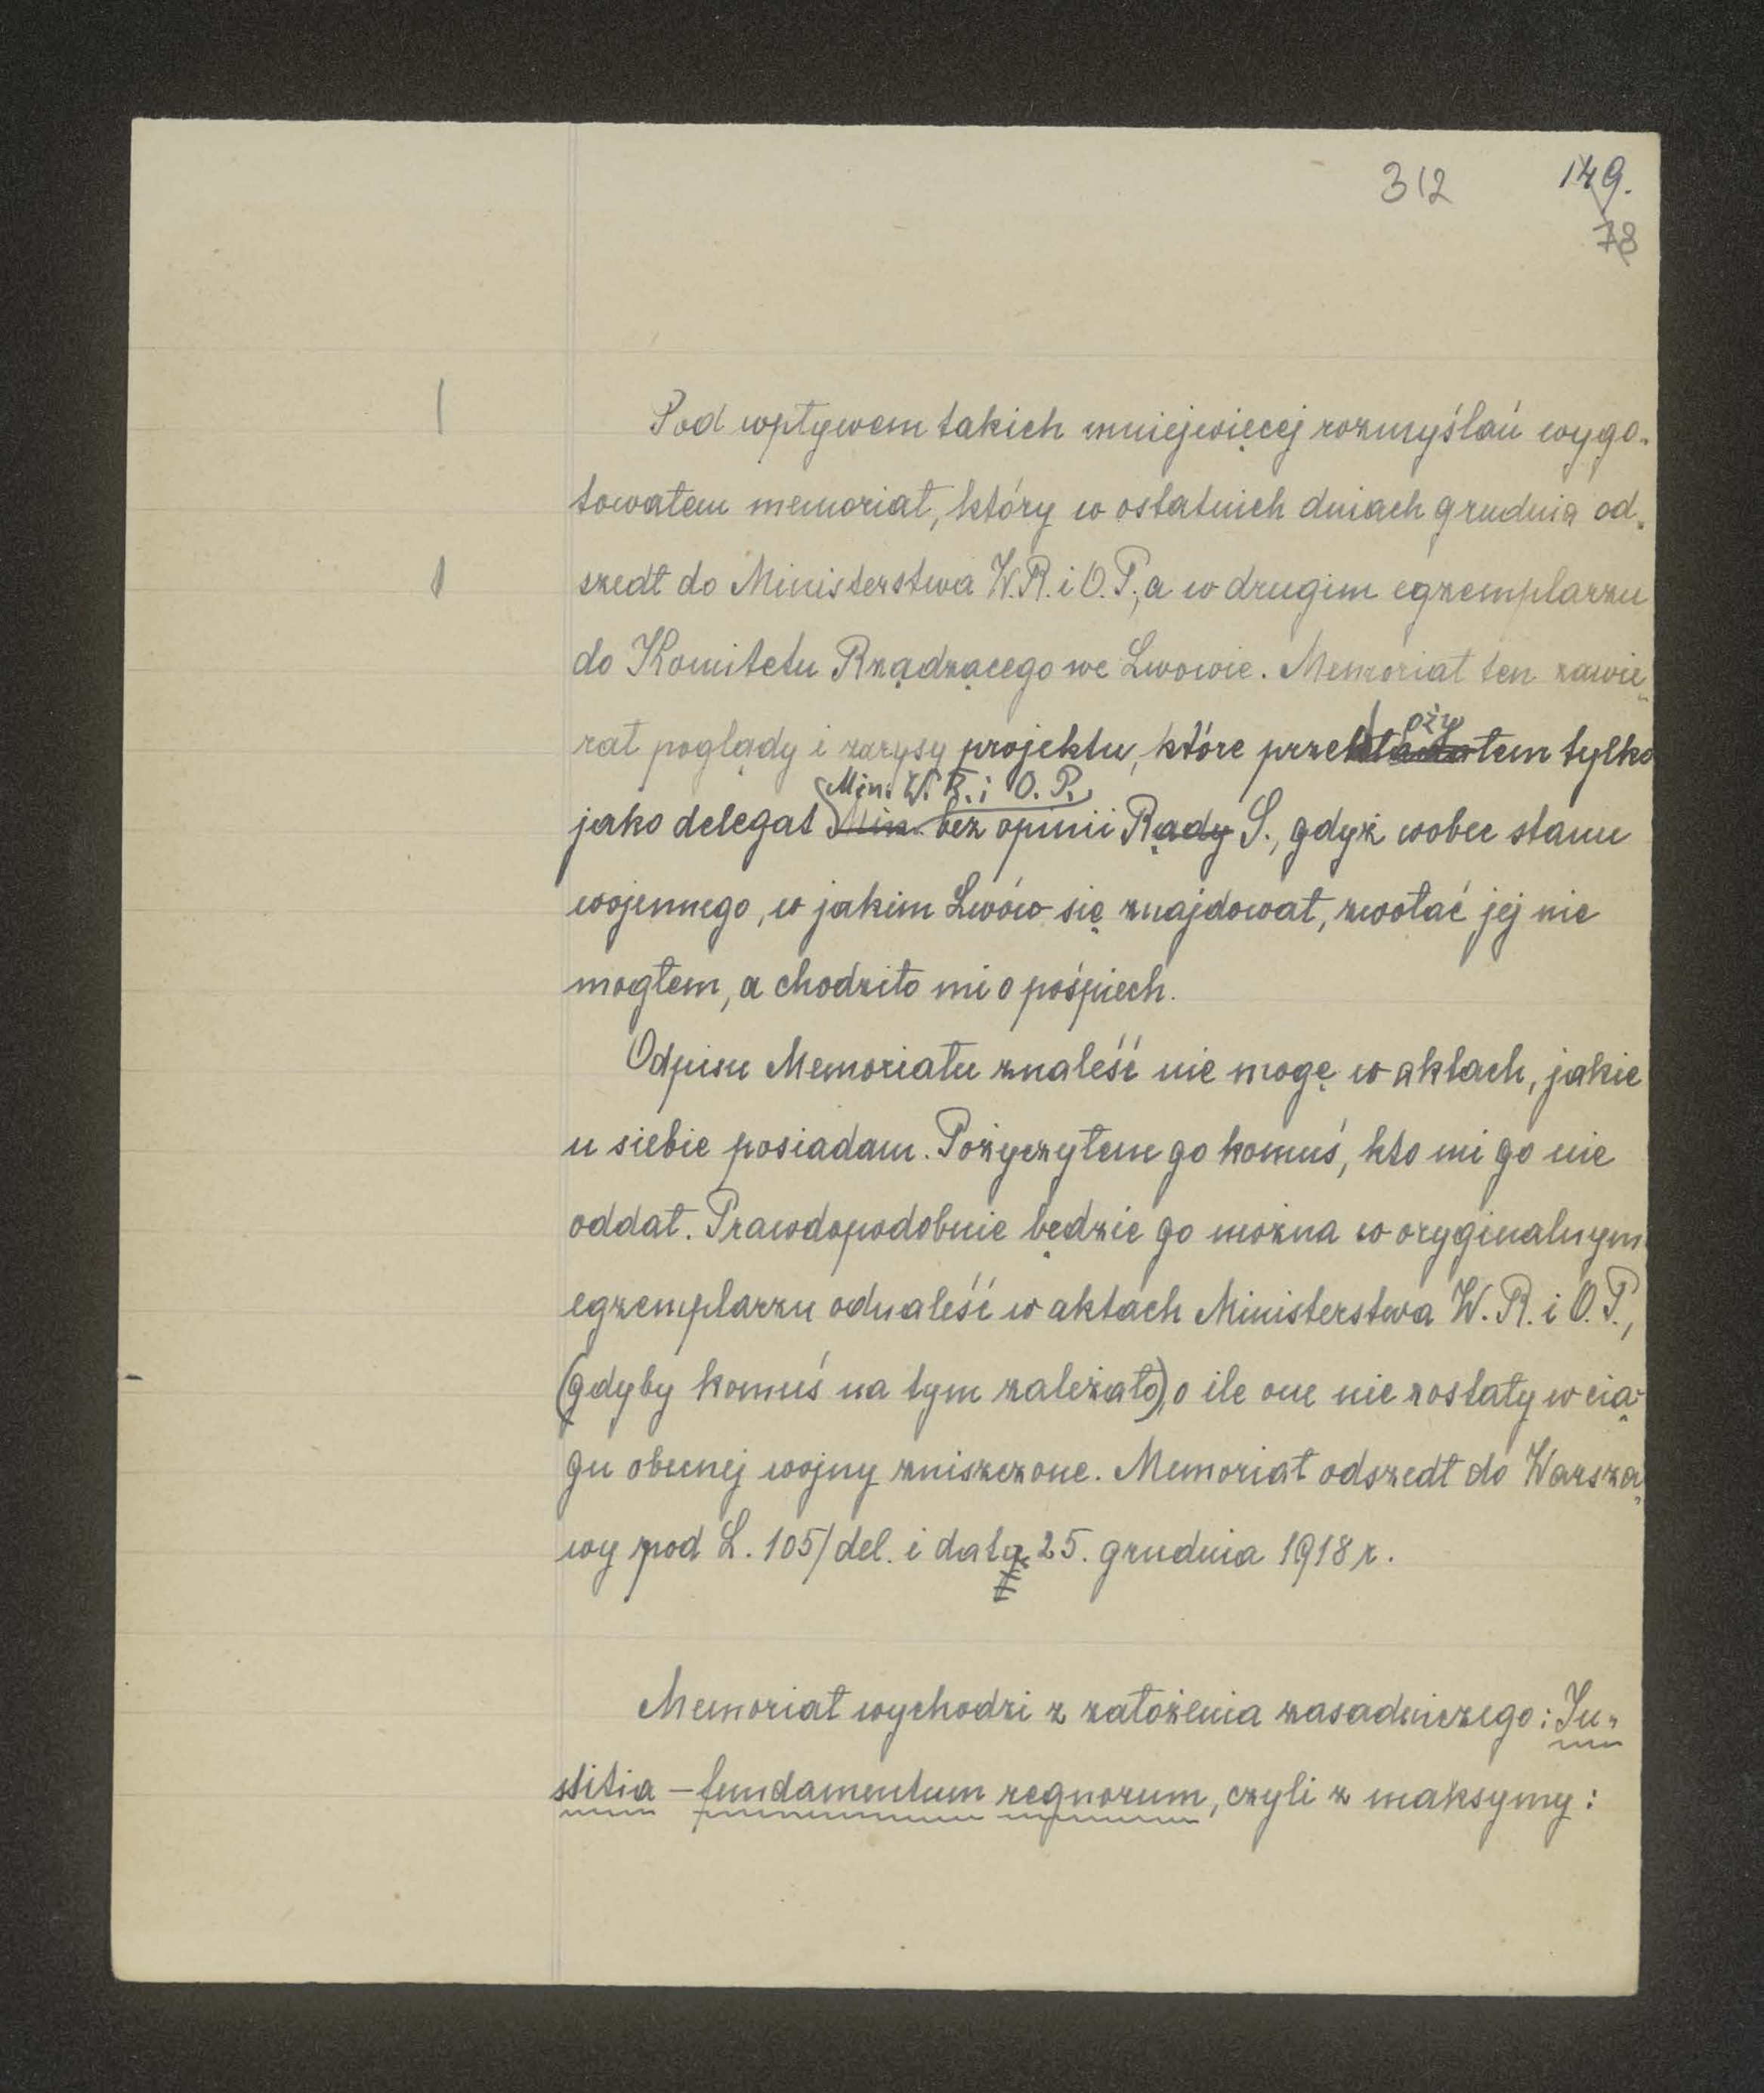 312 149.
78
Pod wpływem takich mniejwięcej rozmyślań wygo-
towałem memoriał, który w ostatnich dniach grudnia od-
szedł do Ministerstwa W.R. i O.P., a w drugim egzemplarzu
do Komitetu Rządzącego we Lwowie. Memoriał ten zawie-
rał poglądy i zarysy projektu, które przedłożyłem tylko
Min. W. R. i O. P.
jako delegat Min. bez opinii Rady S., gdyż wobec stanu
wojennego, w jakim Lwów się znajdował, zwołać jej nie
mogłem, a chodziło mi o pośpiech.
Odpisu Memoriału znaleść nie mogę w aktach, jakie
u siebie posiadam. Pożyczyłem go komuś, kto mi go nie
oddał. Prawdopodobnie będzie go można w oryginalnym
egzemplarzu odnaleść w aktach Ministerstwa W. R. i O. P.,
(gdyby komuś na tym zależało), o ile one nie zostały w cią-
gu obecnej wojny zniszczone. Memoriał odszedł do Warsza-
wy pod L. 105/del. i datą 25. grudnia 1918 r.
Memoriał wychodzi z założenia zasadniczego: Ju-
stitia – fundamentum regnorum, czyli z maksymy: